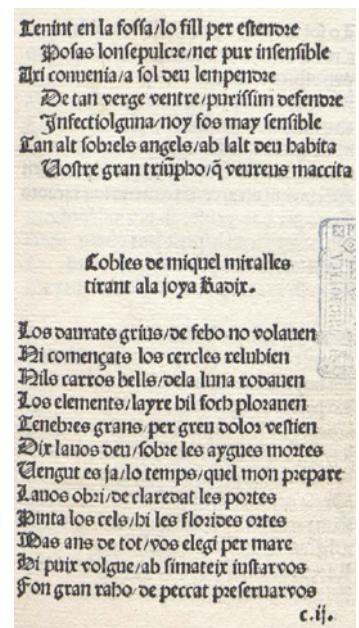 Tenint en la fossa/lo fill per estendre
Posas lonsepulcre/net pur insensible
Axi conuenia/a sol deu lempendre
De tan verge ventre/purissim defendre
Infectiolguna/noy fos may sensible
Tan alt sobrels angels/ab lalt deu habita
Vostre gran triũpho/q̃ veureus maccita
Cobles de miquel miralles
tirant ala joya Radix.
Los daurats grius/de febo no volauen
Ni començats los cercles reluhien
Nils carros bells/dela luna rodauen
Los elements/layre hil foch plorauen
Tenebres grans/per greu dolor vestien
Dix lauos deu/sobre les aygues mortes
Vengut es ja/lo temps/quel mon prepare
Lauos obri/de claredat les portes
Pinta los cels/hi les florides ortes
Mas ans de tot/vos elegi per mare
Hi puix volgue/ab simateix justarvos
Fon gran raho/de peccat preseruarvos
c.ij.